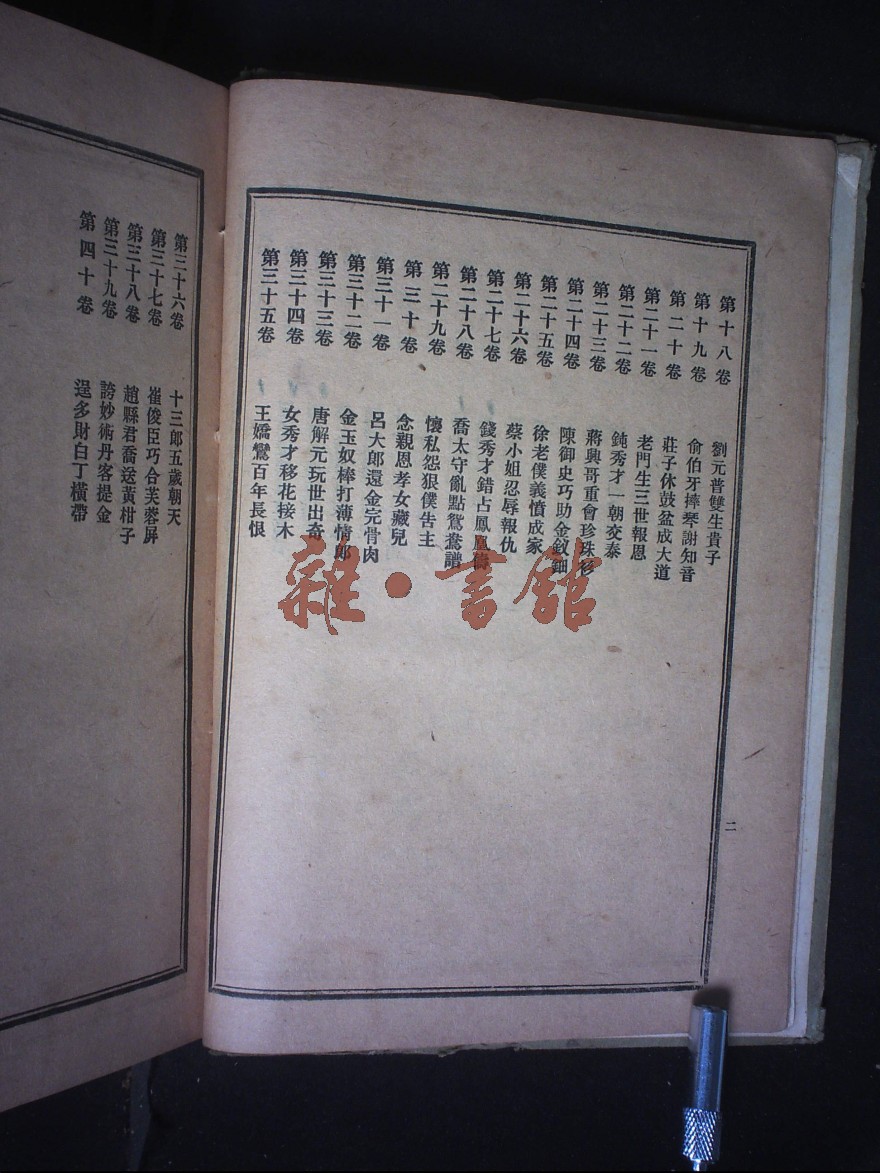 第十八卷 劉元普雙生貴子
第十九卷 俞伯牙摔琴謝知音
第二十卷 莊子休鼓盆成大道
第二十一卷 老門生三世報恩
第二十二卷 鈍秀才一朝交泰
第二十三卷 蔣興哥重會珍珠衫
第二十四卷 陳御史巧勘金釵鈿
第二十五卷 徐老僕義憤成家
第二十六卷 蔡小姐忍辱報仇
第二十七卷 錢秀才錯占鳳凰儔
第二十八卷 喬太守亂點鴛鴦譜
第二十九卷 懷私怨狠僕告主
第三十卷 念親恩孝女藏兒
第三十一卷 呂大郎還金完骨肉
第三十二卷 金玉奴棒打薄情郎
第三十三卷 唐解元玩世出奇
第三十四卷 女秀才移花接木
第三十五卷 王嬌鸞百年長恨
二
第三十六卷 十三郎五歲朝天
第三十七卷 崔俊臣巧合芙蓉屏
第三十八卷 趙縣君喬送黃柑子
第三十九卷 誇妙術丹客提金
第四十卷 逞多財白丁橫帶
雜·書館